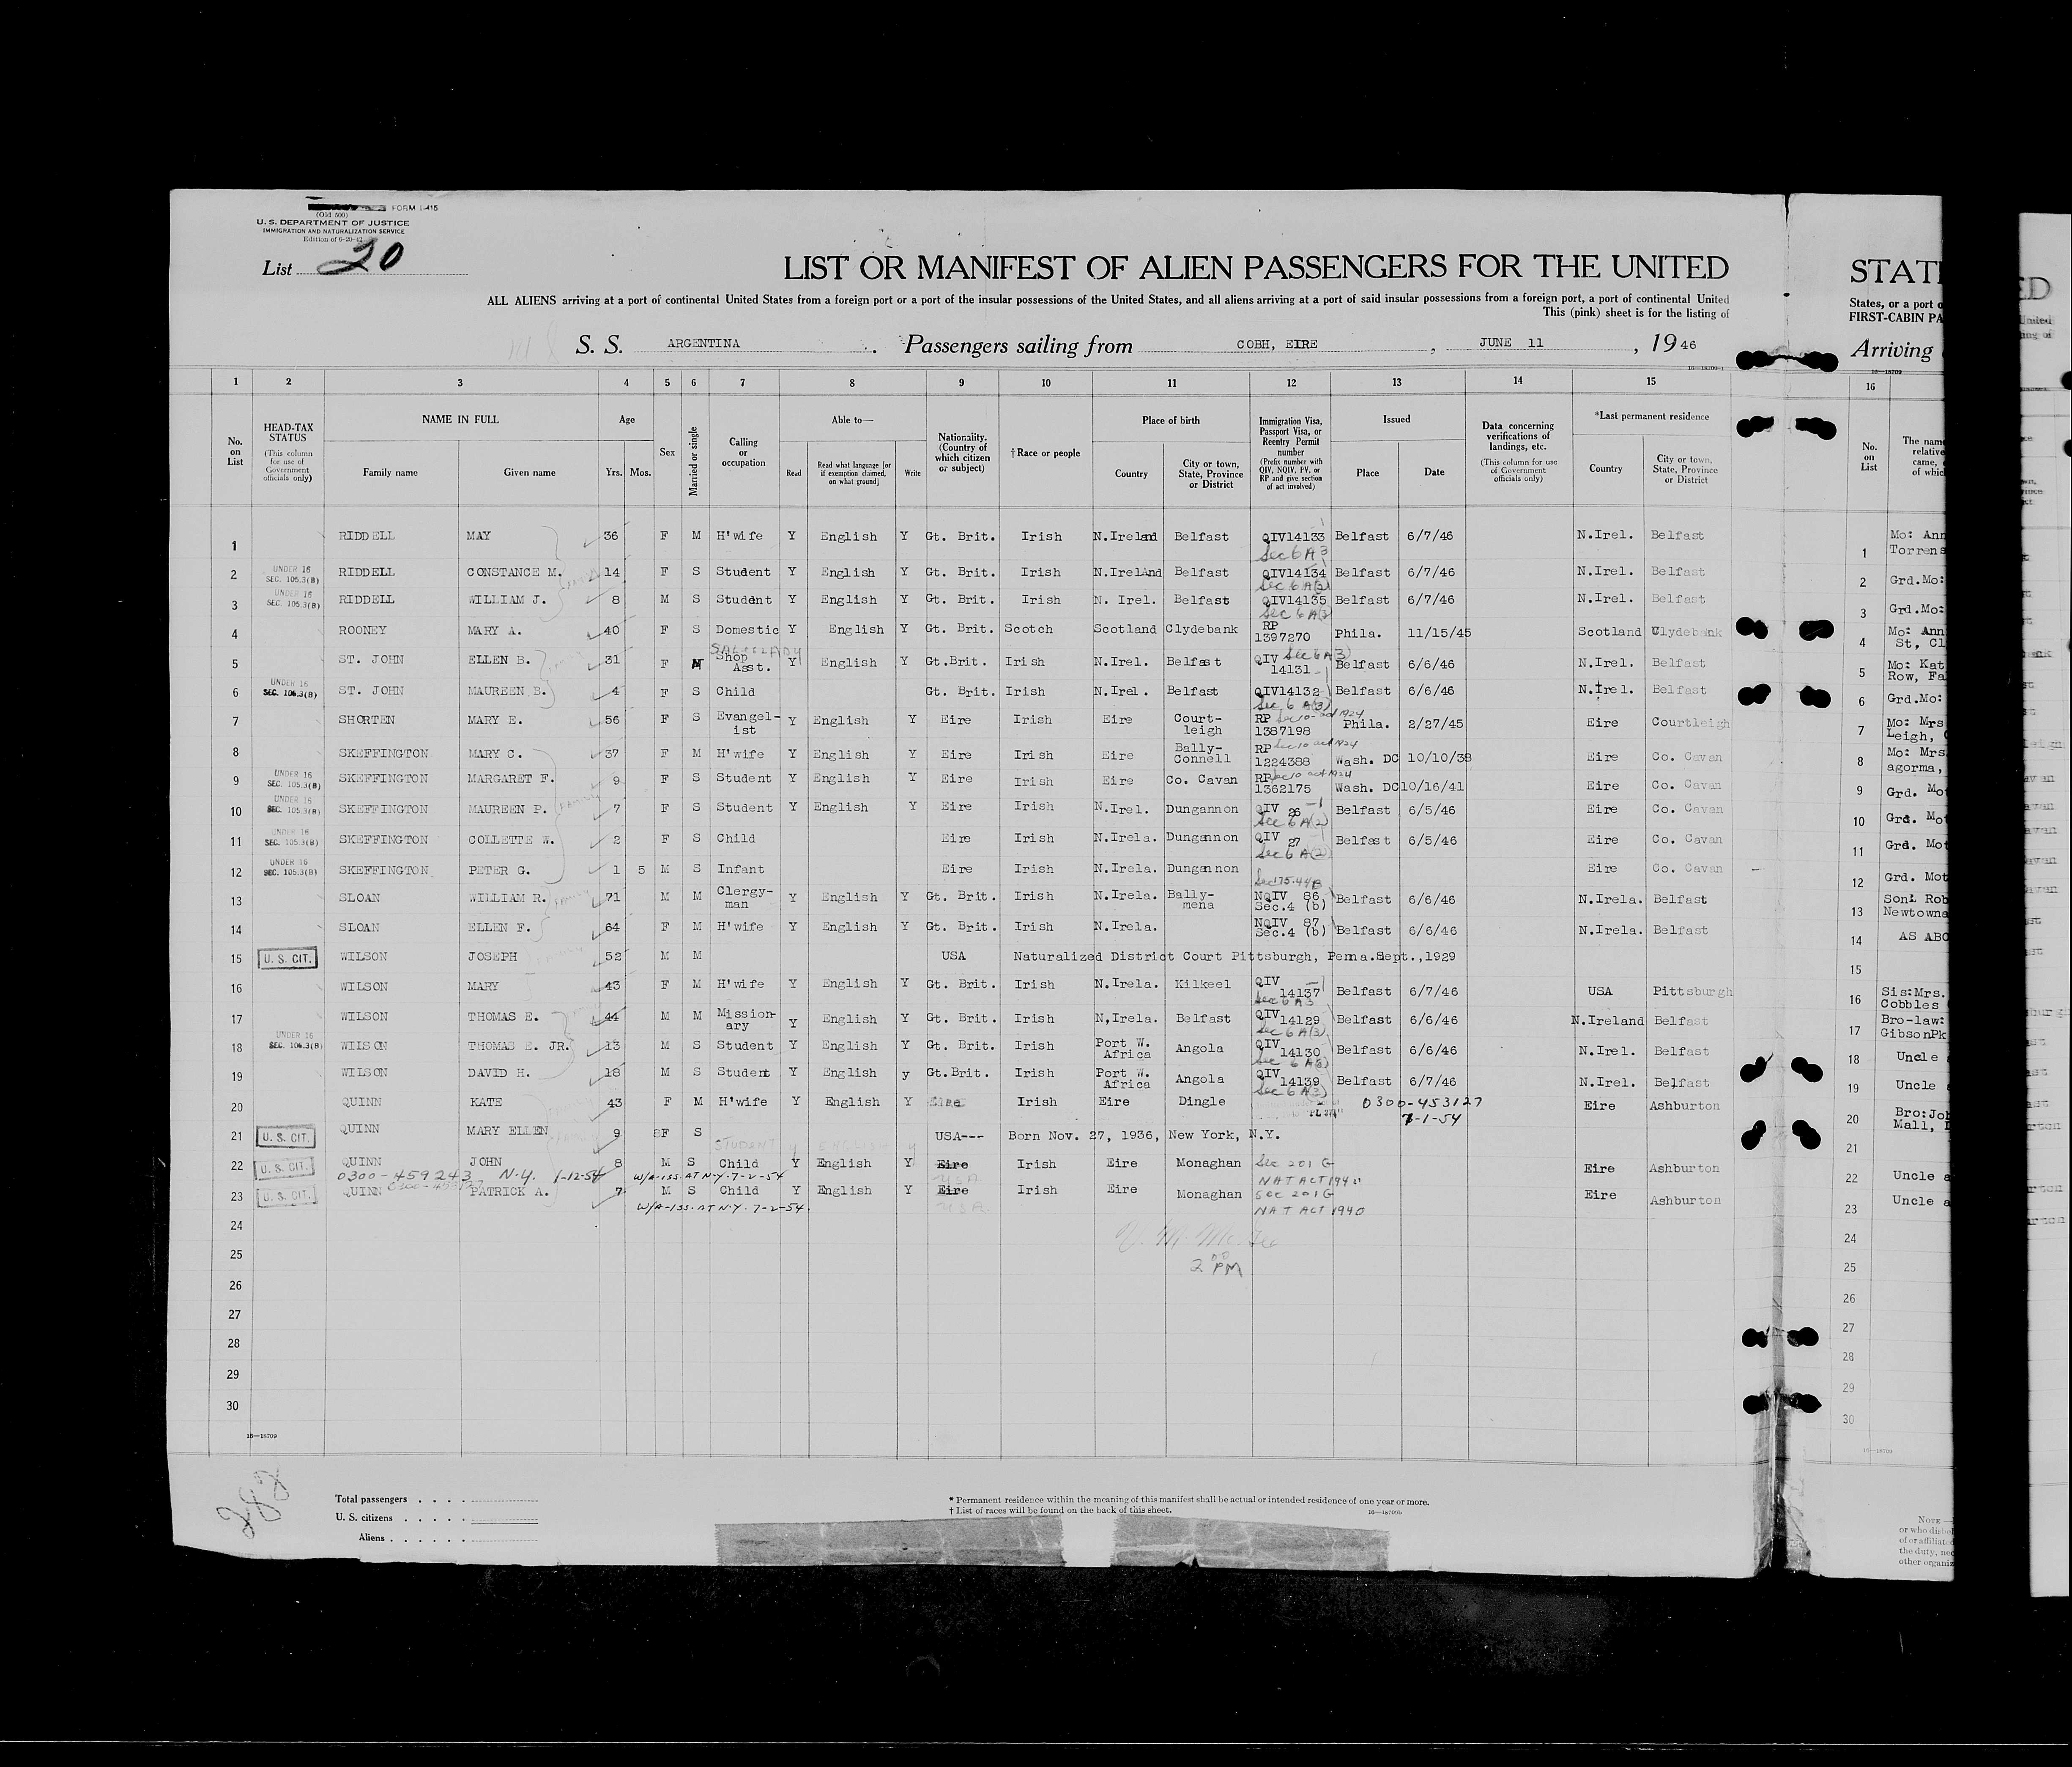 FORM I-415
(Old 500)
U. S. DEPARTMENT OF JUSTICE
IMMIGRATION AND NATURALIZATION SERVICE
Edition of 6-20-42
List 20
LIST OR MANIFEST OF ALIEN PASSENGERS FOR THE UNITED
ALL ALIENS arriving at a port of continental United States from a foreign port or a port of the insular possessions of the United States, and all aliens arriving at a port of said insular possessions from a foreign port, a port of continental United
This (pink) sheet is for the listing of
S. S. ARGENTINA Passengers sailing from COBH, EIRE, JUNE 11, 1946
16—18709-1
1 2 3 4 5 6 7 8 9 10 11 12 13 14 15
No. on List
HEAD-TAX STATUS (This column for use of Government officials only)
NAME IN FULL Family name Given name
Age Yrs. Mos.
Sex
Married or single
Calling or occupation
Able to— Read Read what language [or if exemption claimed, on what ground] Write
Nationality. (Country of which citizen or subject)
† Race or people
Place of birth Country City or town, State, Province or District
Immigration Visa, Passport Visa, or Reentry Permit number (Prefix number with QIV, NQIV, PV, or RP and give section of act involved)
Issued Place Date
Data concerning verifications of landings, etc. (This column for use of Government officials only)
*Last permanent residence Country City or town, State, Province or District
1 RIDDELL MAY 36 F M H'wife Y English Y Gt. Brit. Irish N.Ireland Belfast QIV14133 Sec 6 A 3 Belfast 6/7/46 N.Irel. Belfast
2 UNDER 16 SEC. 105.3(B) RIDDELL CONSTANCE M. 14 F S Student Y English Y Gt. Brit. Irish N.Ireland Belfast QIV14134 Sec 6 A(3) Belfast 6/7/46 N.Irel. Belfast
3 UNDER 16 SEC. 105.3(B) RIDDELL WILLIAM J. 8 M S Student Y English Y Gt. Brit. Irish N. Irel. Belfast QIV14135 Sec 6 A(3) Belfast 6/7/46 N.Irel. Belfast
4 ROONEY MARY A. 40 F S Domestic Y English Y Gt. Brit. Scotch Scotland Clydebank RP 1397270 Phila. 11/15/45 Scotland Clydebank
5 ST. JOHN ELLEN B. 31 F M SALESLADY Shop Asst. Y English Y Gt.Brit. Irish N.Irel. Belfast QIV Sec 6 A(3) 14131 Belfast 6/6/46 N.Irel. Belfast
6 UNDER 16 SEC. 105.3(B) ST. JOHN MAUREEN B. 4 F S Child Gt. Brit. Irish N.Irel. Belfast QIV14132 Sec 6 A(3) Belfast 6/6/46 N.Irel. Belfast
7 SHORTEN MARY E. 56 F S Evangel-ist Y English Y Eire Irish Eire Court-leigh RP Sec 10 act 1924 1387198 Phila. 2/27/45 Eire Courtleigh
8 SKEFFINGTON MARY C. 37 F M H'wife Y English Y Eire Irish Eire Bally-Connell RP Sec 10 act 1924 1224388 Wash. DC 10/10/38 Eire Co. Cavan
9 UNDER 16 SEC. 105.3(B) SKEFFINGTON MARGARET F. 9 F S Student Y English Y Eire Irish Eire Co. Cavan RP Sec 10 act 1924 1362175 Wash. DC 10/16/41 Eire Co. Cavan
10 UNDER 16 SEC. 105.3(B) SKEFFINGTON MAUREEN P. 7 F S Student Y English Y Eire Irish N.Irel. Dungannon QIV 26 Sec 6 A(2) Belfast 6/5/46 Eire Co. Cavan
11 UNDER 16 SEC. 105.3(B) SKEFFINGTON COLLETTE W. 2 F S Child Eire Irish N.Irela. Dungannon QIV 27 Sec 6 A(2) Belfast 6/5/46 Eire Co. Cavan
12 UNDER 16 SEC. 105.3(B) SKEFFINGTON PETER G. 1 5 M S Infant Eire Irish N.Irela. Dungannon Sec 175.44B Eire Co. Cavan
13 SLOAN WILLIAM R. 71 M M Clergy-man Y English Y Gt. Brit. Irish N.Irela. Bally-mena NQIV 86 Sec.4 (b) Belfast 6/6/46 N.Irela. Belfast
14 SLOAN ELLEN F. 64 F M H'wife Y English Y Gt. Brit. Irish N.Irela. NQIV 87 Sec.4 (b) Belfast 6/6/46 N.Irela. Belfast
15 U. S. CIT. WILSON JOSEPH 52 M M USA Naturalized District Court Pittsburgh, Penna.Sept.,1929
16 WILSON MARY 43 F M H'wife Y English Y Gt. Brit. Irish N.Irela. Kilkeel QIV 14137 Sec 6 A 3 Belfast 6/7/46 USA Pittsburgh
17 WILSON THOMAS E. 44 M M Mission-ary Y English Y Gt. Brit. Irish N,Irela. Belfast QIV 14129 Sec 6 A(3) Belfast 6/6/46 N.Ireland Belfast
18 UNDER 16 SEC. 105.3(B) WILSON THOMAS E. JR. 13 M S Student Y English Y Gt. Brit. Irish Port W. Africa Angola QIV 14130 Sec 6 A(3) Belfast 6/6/46 N.Irel. Belfast
19 WILSON DAVID H. 18 M S Student Y English y Gt.Brit. Irish Port W. Africa Angola QIV 14139 Sec 6 A(3) Belfast 6/7/46 N.Irel. Belfast
20 QUINN KATE 43 F M H'wife Y English Y Eire Irish Eire Dingle 0300-453127 7-1-54 Eire Ashburton
21 U. S. CIT. QUINN MARY ELLEN 9 F S STUDENT Y ENGLISH Y USA--- Born Nov. 27, 1936, New York, N.Y.
22 U. S. CIT. QUINN JOHN 8 M S Child Y English Y Eire USA Irish Eire Monaghan Sec 201 G NAT ACT 1940 Eire Ashburton
0300-459243 N.Y. 1-12-54 W/A-ISS. AT N.Y. 7-2-54
23 U. S. CIT. QUINN PATRICK A. 7 M S Child Y English Y Eire USA Irish Eire Monaghan Sec 201 G NAT ACT 1940 Eire Ashburton
W/A-ISS. AT N.Y. 7-2-54
24
25 2 00 PM
26
27
28
29
30
16—18709
282
Total passengers
U. S. citizens
Aliens
* Permanent residence within the meaning of this manifest shall be actual or intended residence of one year or more.
† List of races will be found on the back of this sheet.
16—18709b
STAT
States, or a port o
FIRST-CABIN PA
Arriving
16—18709
16
No. on List
The name
relative
came,
of whic
1 Mo: Ann
Torrens
2 Grd.Mo:
3 Grd.Mo:
4 Mo: Ann
St, Cl
5 Mo: Kat
Row, Fa
6 Grd.Mo:
7 Mo: Mrs
Leigh,
8 Mo: Mrs
agorma,
9 Grd. Mo
10 Grd. Mo
11 Grd. Mot
12 Grd. Mot
13 Son: Rob
Newtowna
14 AS ABO
15
16 Sis:Mrs.
Cobbles
17 Bro-law:
GibsonPk
18 Uncle
19 Uncle
20 Bro:Joh
Mall,
21
22 Uncle a
23 Uncle a
24
25
26
27
28
29
30
16—18709
NOTE —
or who disbel
of or affiliated
the duty, nec
other organiz